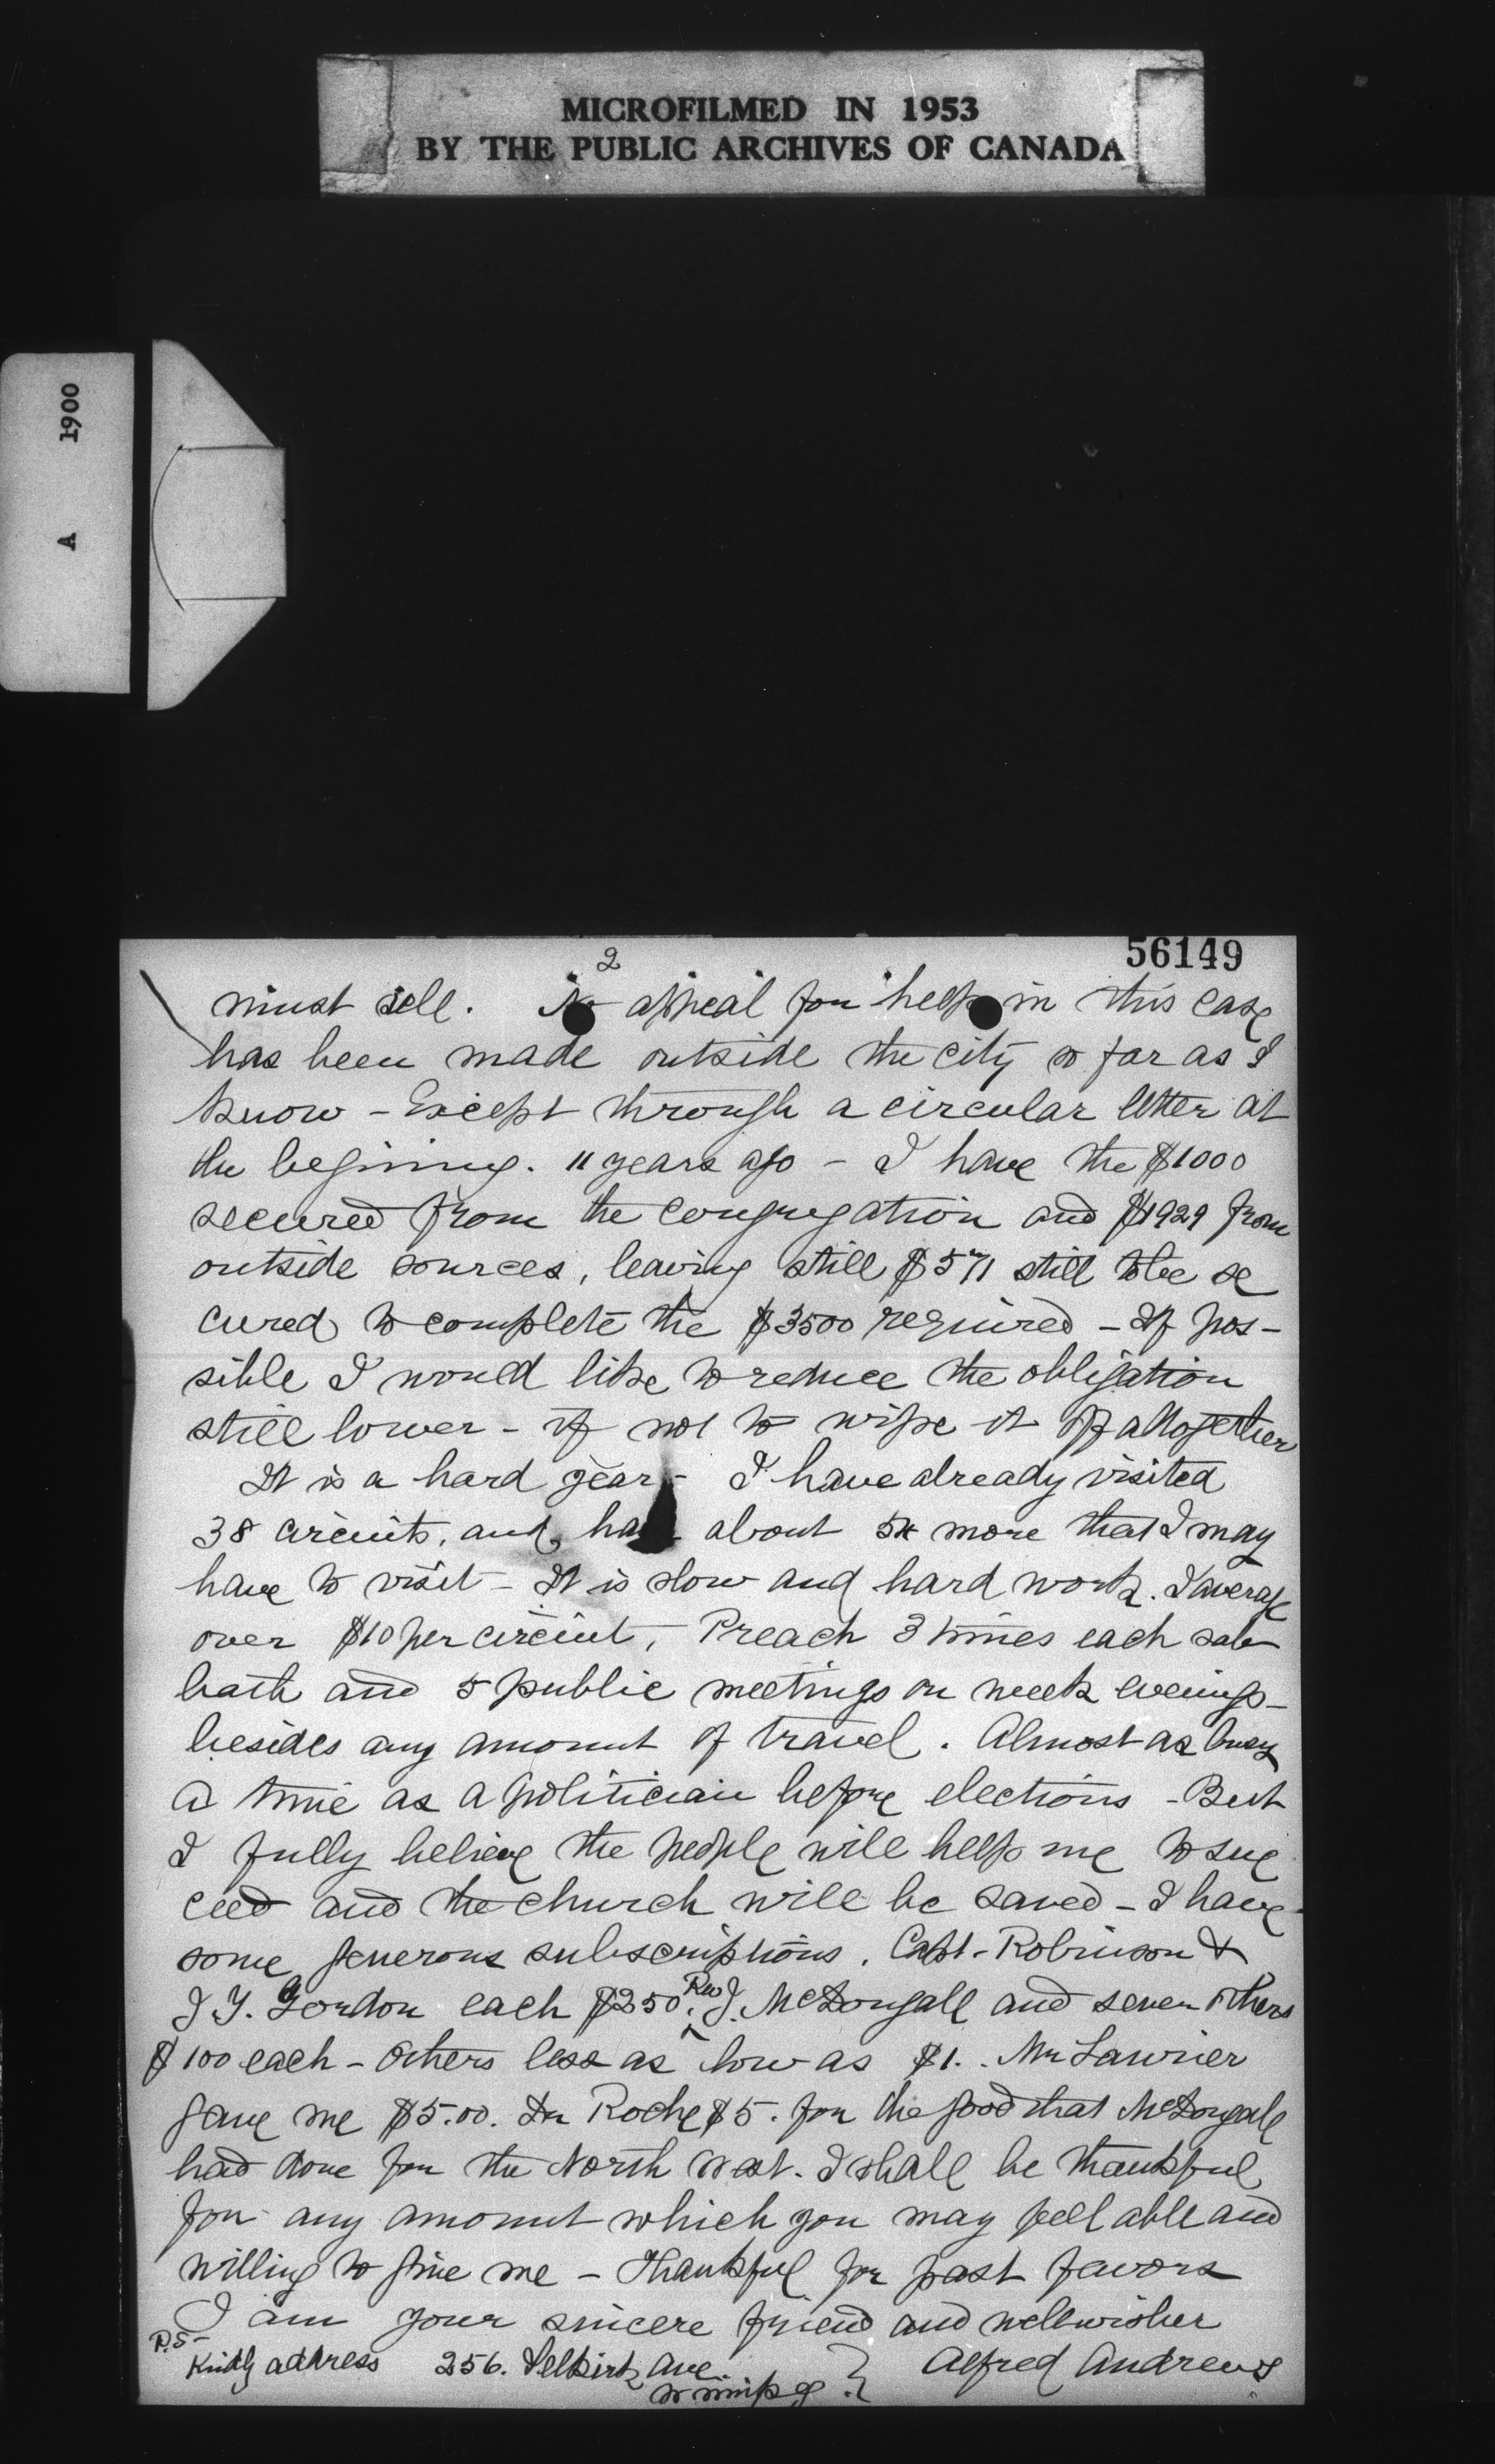 MICROFILMED IN 1953
BY THE PUBLIC ARCHIVES OF CANADA
A 1900
56149
2
must sell. No appeal for help in this case
has been made outside the city so far as I
know - Except through a circular letter at
the begining. 11 years ago - I have the $1000
secured from the congregation and $1929 from
outside sources, leaving still $571 still to be se
cured to complete the $3500 required - If pos-
sible I would like to reduce the obligation
still lower - if not to wipe it off altogether
It is a hard year - I have already visited
38 circuits, and have about more that I may
have to visit - It is slow and hard work. I average
over $10 per circuit, Preach 3 times each sab-
bath and 5 public meetings on week evenings -
besides any amount of travel. Almost as busy
a time as a politician before elections - But
I fully believe the people will help me to suc
ceed and the church will be saved - I have
some generous subscriptions. Capt. Robinson &
J. T. Gordon each $250. Rev J. McDougall and seven others
$100 each - others less as low as $1.. Mr Laurier
gave me $5.00. Dr Roche $5. for the good that McDougall
had done for the North West. I shall be thankful
for any amount which you may feel able and
willing to give me - Thankful for past favors
I am your sincere friend and wellwisher
Alfred Andrews
P.S-
Kindly address 256. Selkirk Ave.
Winnipeg